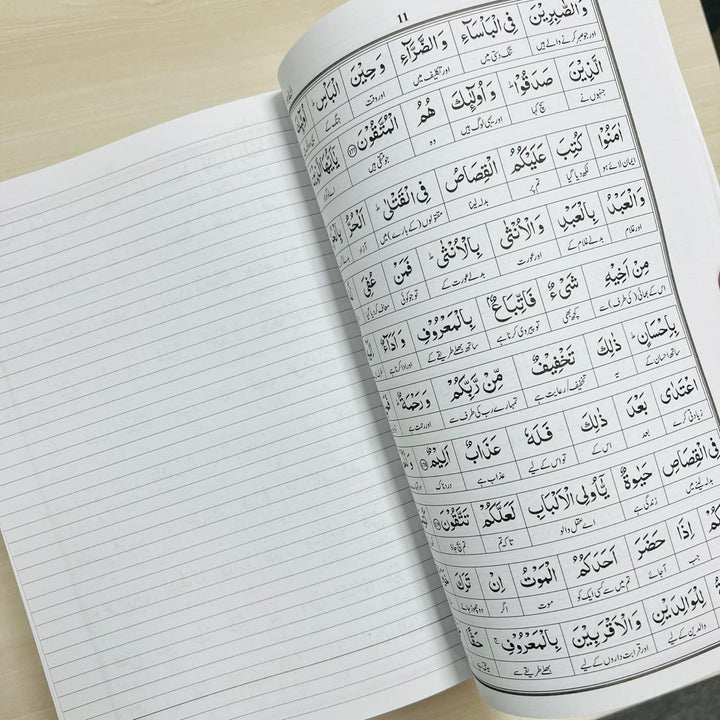 11
وَالصّٰبِرِيْنَ فِي الْبَاْسَآءِ وَالضَّرَّآءِ وَحِيْنَ الْبَاْسِ ؕ
اور جو صبر کرنے والے ہیں تنگ دستی میں اور تکلیف میں اور وقت جنگ کے
الَّذِيْنَ صَدَقُوْا ؕ وَاُولٰٓئِكَ هُمُ الْمُتَّقُوْنَ ﴿۱۷۷﴾ يٰٓاَيُّهَا الَّذِيْنَ
جنہوں نے سچ کہا اور یہی لوگ ہیں وہ جو متقی ہیں
اٰمَنُوْا كُتِبَ عَلَيْكُمُ الْقِصَاصُ فِي الْقَتْلٰى ؕ اَلْحُرُّ
ایمان لائے ہو لکھ دیا گیا تم پر بدلہ لینا مقتولوں (کے بارے) میں آزاد
وَالْعَبْدُ بِالْعَبْدِ وَالْاُنْثٰى بِالْاُنْثٰى ؕ فَمَنْ عُفِيَ
اور غلام بدلے غلام کے اور عورت بدلے عورت کے تو جو کوئی معاف کر دیا گیا
مِنْ اَخِيْهِ شَيْءٌ فَاتِّبَاعٌۢ بِالْمَعْرُوْفِ وَاَدَآءٌ
اس کے بھائی (کی طرف) سے کچھ بھی تو پیروی کرنا ہے ساتھ بھلے طریقے کے اور ادا کرنا ہے
بِاِحْسَانٍ ؕ ذٰلِكَ تَخْفِيْفٌ مِّنْ رَّبِّكُمْ وَرَحْمَةٌ ؕ
ساتھ احسان کے یہ تخفیف / رعایت ہے تمہارے رب کی طرف سے اور رحمت ہے
اعْتَدٰى بَعْدَ ذٰلِكَ فَلَهٗ عَذَابٌ اَلِيْمٌ ﴿۱۷۸﴾
زیادتی کرے بعد اس کے تو اس کے لیے عذاب ہے دردناک
فِي الْقِصَاصِ حَيٰوةٌ يّٰٓاُولِي الْاَلْبَابِ لَعَلَّكُمْ تَتَّقُوْنَ
بدلہ لینے میں زندگی ہے اے عقل والو تاکہ تم تم بچ جاؤ
اِذَا حَضَرَ اَحَدَكُمُ الْمَوْتُ اِنْ تَرَكَ
جب آجائے تم میں سے کسی ایک کو موت اگر وہ چھوڑ جائے
لِلْوَالِدَيْنِ وَالْاَقْرَبِيْنَ بِالْمَعْرُوْفِ ۚ حَقًّا
والدین کے لیے اور قرابت داروں کے لیے بھلے طریقے سے